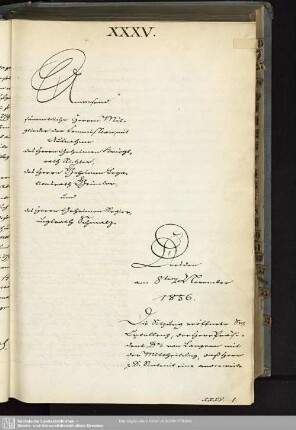 XXXV.
Anwesend
sämmtliche Herren Mit-
glieder der Commission mit
Ausnahme
des Herrn Geheimen
rath Richter,
des Herrn Geheimen Lega-
tionsrath
und
des Herrn Geheimen Regier-
ungsrath Schmalz.
Dresden
am 8ten November
1856.
Die Sitzung eröffnete Se.
Excellenz, der Herr Präsi-
dent Dr. von Langenn mit
der Mittheilung, daß Herr
eine
XXXV. 1.
Sächsische Landesbibliothek -
Staats- und Universitätsbibliothek Dresden